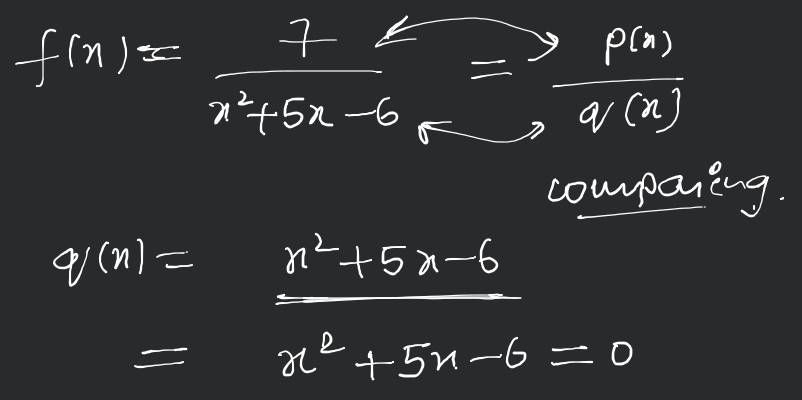 f(x) = 7 / x²+5x-6 = p(x) / q(x)
comparing.
q(x) = x²+5x-6
= x²+5x-6=0